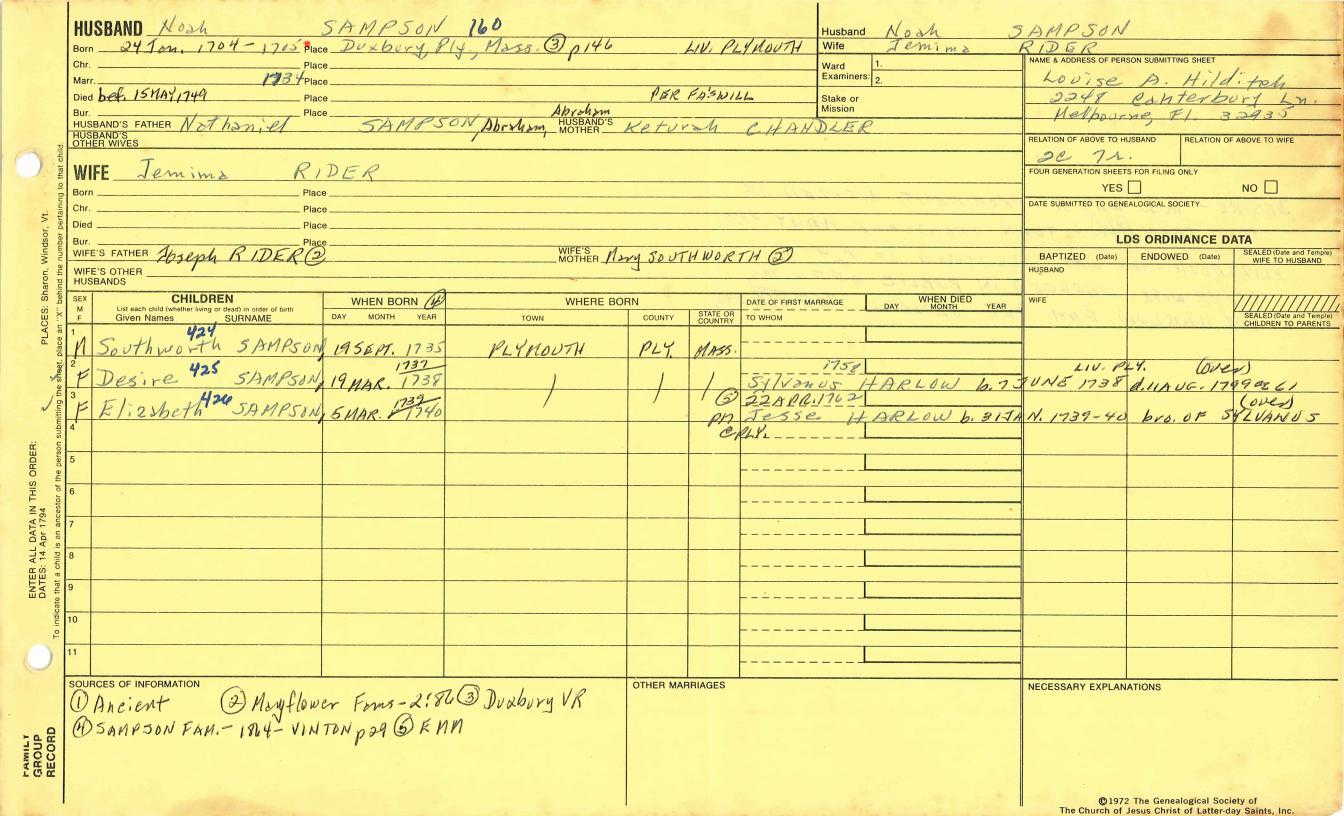 HUSBAND Noah SAMPSON 160
Born 24 Jan. 1704 - 1705 Place Duxbury, Ply, Mass. ③ p146 LIV. PLYMOUTH
Chr. Place
Marr. 1734 Place
Died bef. 15 MAY 1749 Place PER FA'S WILL
Bur. Place Abraham
HUSBAND'S FATHER Nathaniel SAMPSON, Abraham, HUSBAND'S MOTHER Keturah CHANDLER
HUSBAND'S OTHER WIVES
WIFE Jemima RIDER
Born Place
Chr. Place
Died Place
Bur. Place
WIFE'S FATHER Joseph RIDER ② WIFE'S MOTHER Mary SOUTHWORTH ②
WIFE'S OTHER HUSBANDS
Husband Noah SAMPSON
Wife Jemima RIDER
Ward Examiners: 1.
2.
Stake or Mission
NAME & ADDRESS OF PERSON SUBMITTING SHEET
Louise A. Hilditch
2248 Canterbury Ln.
Melbourne, Fl. 32935
RELATION OF ABOVE TO HUSBAND RELATION OF ABOVE TO WIFE
2c 7r.
FOUR GENERATION SHEETS FOR FILING ONLY
YES NO
DATE SUBMITTED TO GENEALOGICAL SOCIETY
LDS ORDINANCE DATA
BAPTIZED (Date) ENDOWED (Date) SEALED (Date and Temple) WIFE TO HUSBAND
HUSBAND
WIFE
SEALED (Date and Temple) CHILDREN TO PARENTS
SEX M F CHILDREN WHEN BORN ④ WHERE BORN DATE OF FIRST MARRIAGE WHEN DIED
List each child (whether living or dead) in order of birth
Given Names SURNAME DAY MONTH YEAR TOWN COUNTY STATE OR COUNTRY TO WHOM DAY MONTH YEAR
1 M Southworth 424 SAMPSON, 19 SEPT. 1735 PLYMOUTH PLY. MASS.
2 F Desire 425 SAMPSON, 19 MAR. 1737 1738 1758 LIV. PLY. (over)
Sylvanus HARLOW b. 7 JUNE 1738 d. 11 AUG. 1799 ae 61
3 F Elizabeth 426 SAMPSON, 5 MAR. 1739 1740 ⑤ 22 APR. 1762 (over)
pm Jesse HARLOW b. 31 JAN. 1739-40 bro. OF SYLVANUS
4 @ PLY.
5
6
7
8
9
10
11
SOURCES OF INFORMATION
① Ancient ② Mayflower Fams - 2:86 ③ Duxbury VR
④ SAMPSON FAM. - 1864 - VINTON p29 ⑤ EMM
OTHER MARRIAGES
NECESSARY EXPLANATIONS
PLACES: Sharon, Windsor, Vt.
ENTER ALL DATA IN THIS ORDER:
DATES: 14 Apr 1794
To indicate that a child is an ancestor of the person submitting the sheet, place an "X" behind the number pertaining to that child.
FAMILY GROUP RECORD
©1972 The Genealogical Society of
The Church of Jesus Christ of Latter-day Saints, Inc.